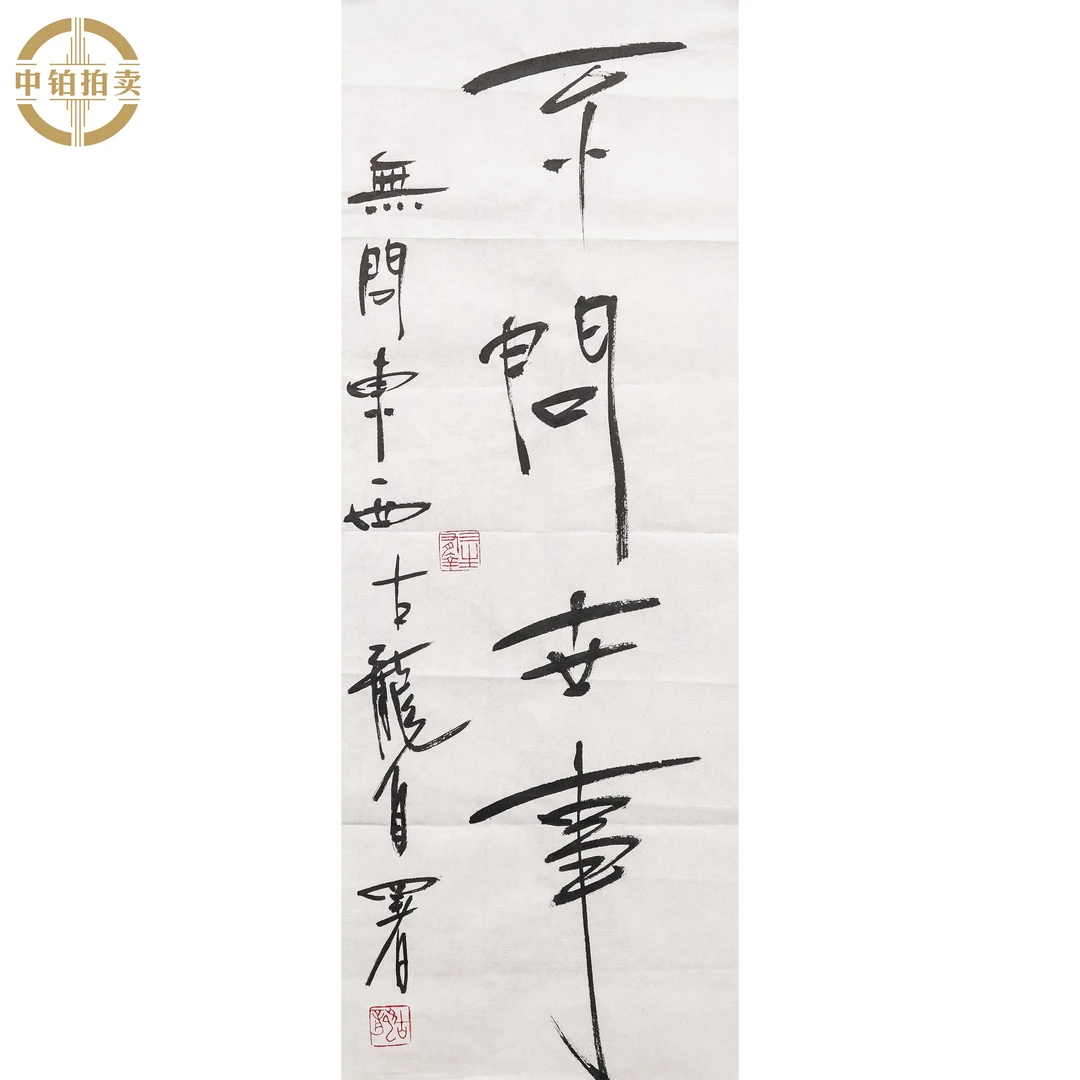 中铂拍卖
不問世事
無問東西古龍自署